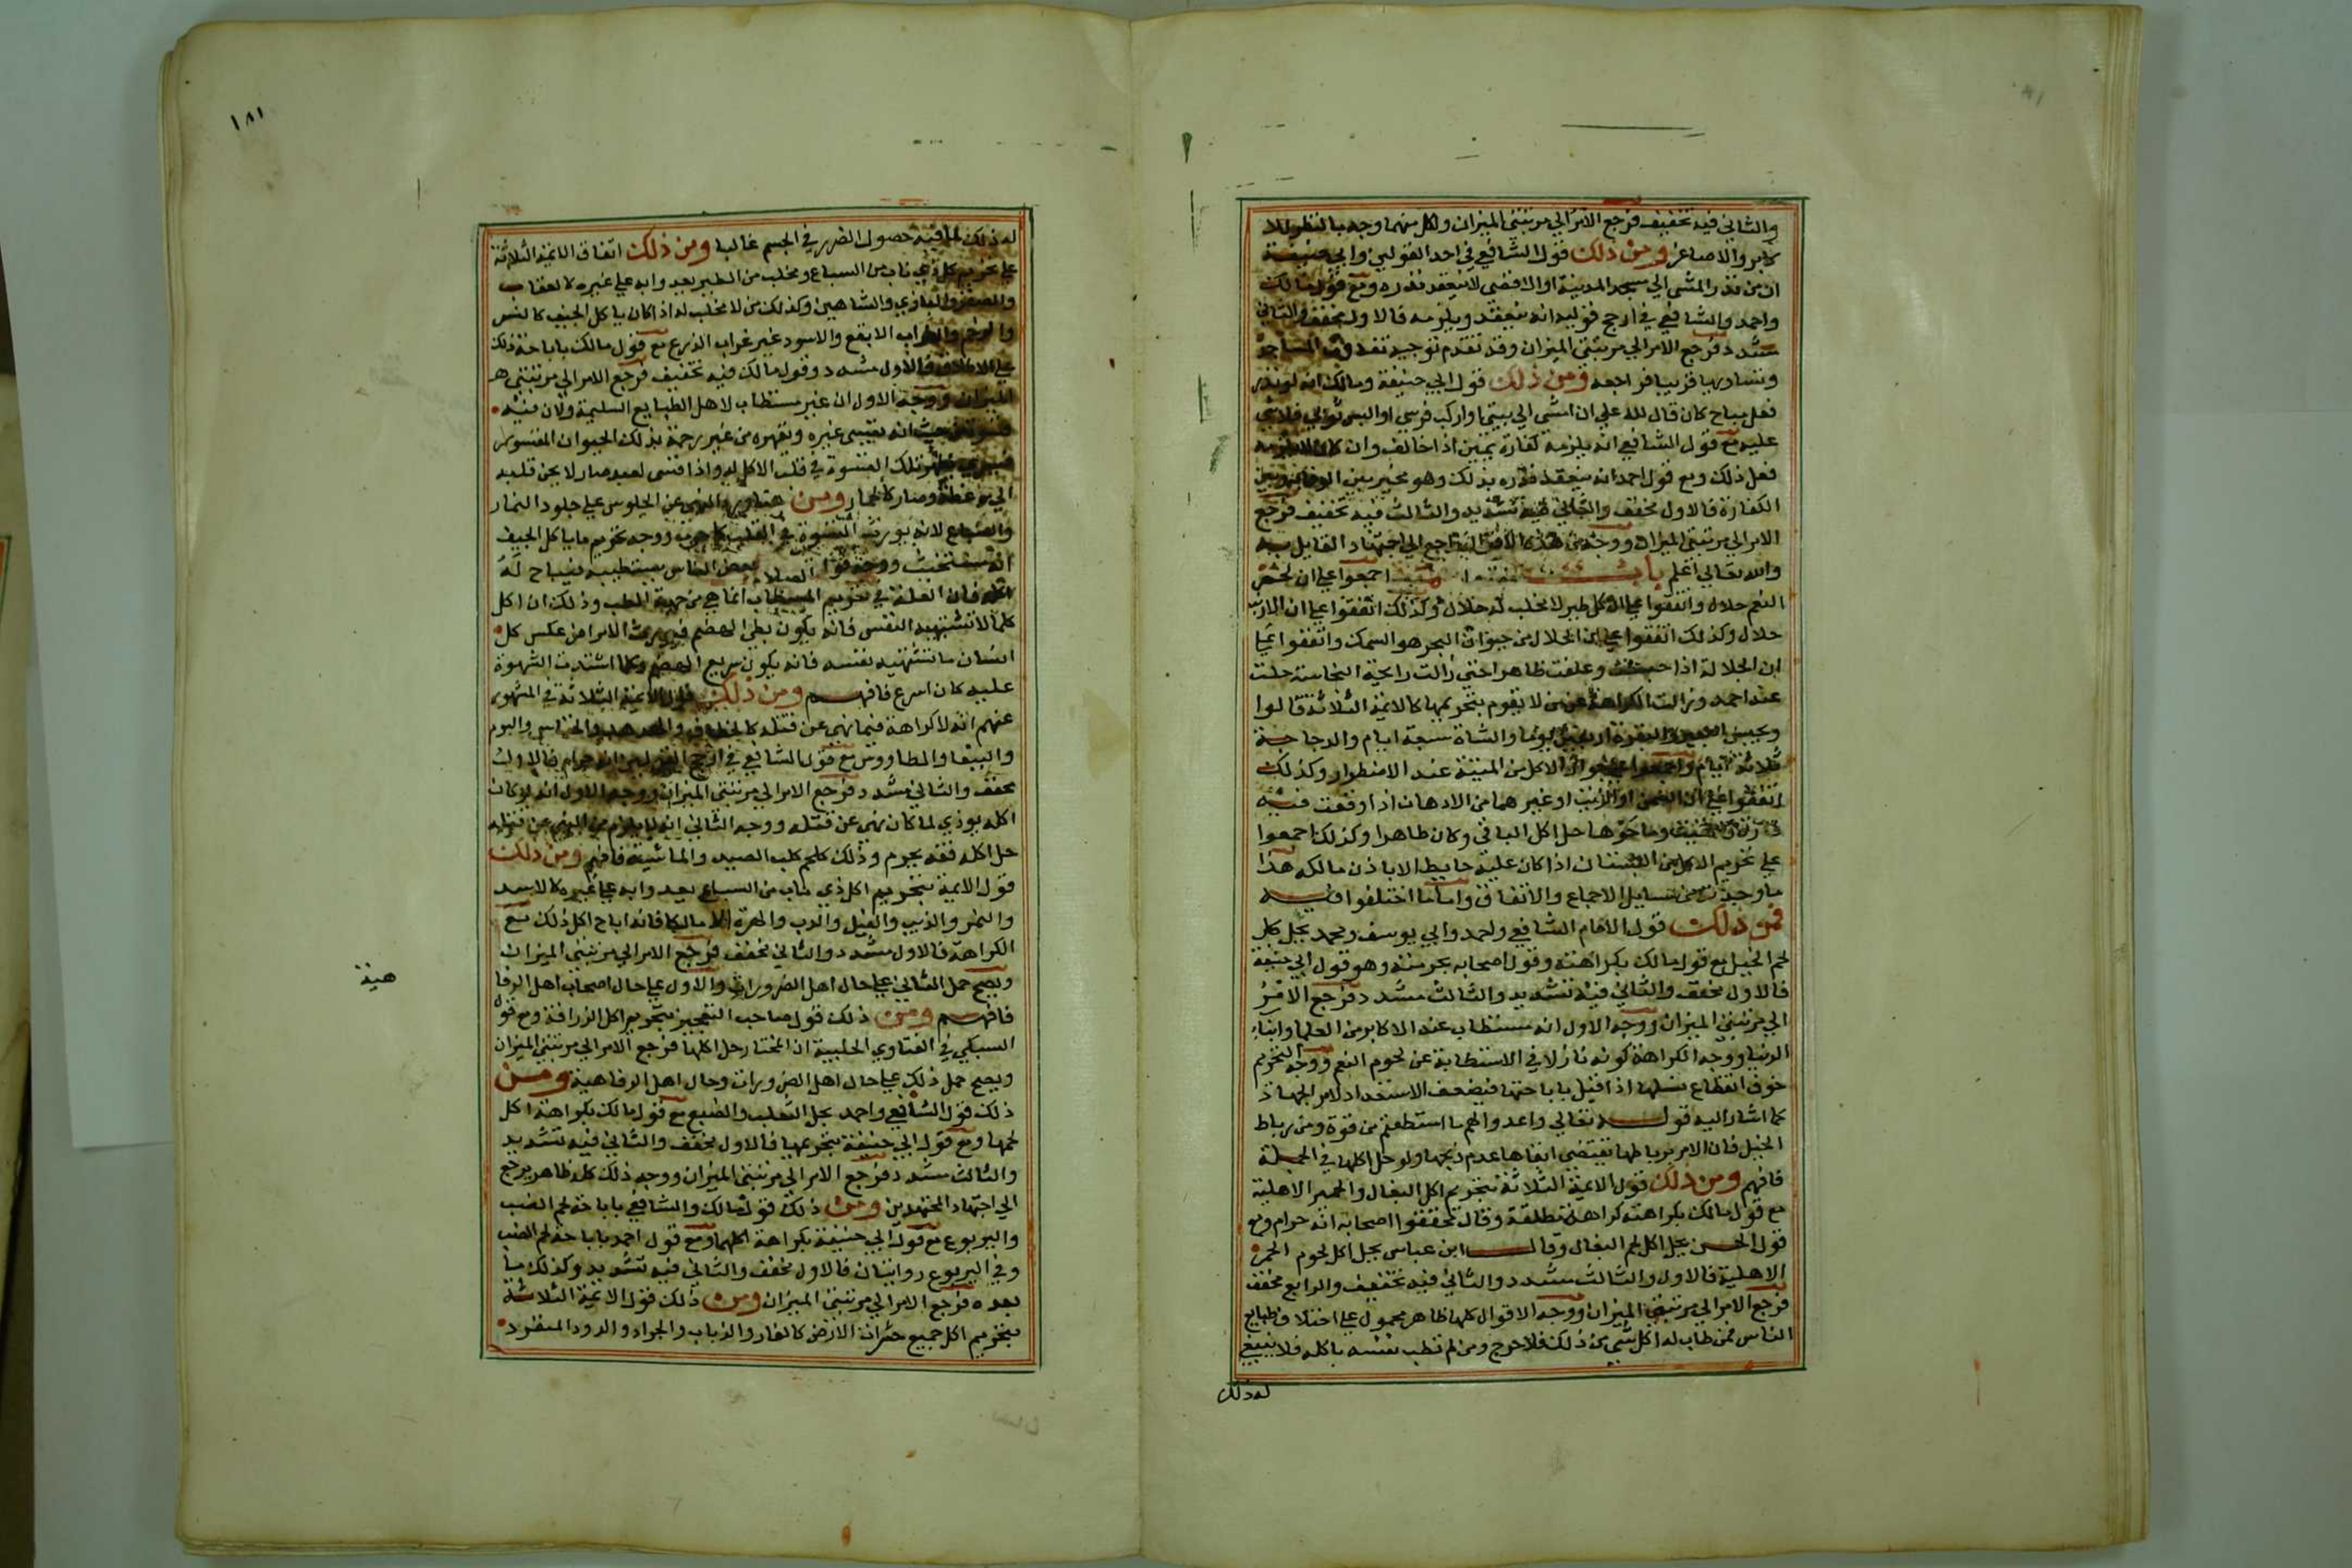 والثاني فيه تخفيف فرجع الامر الي مرتبتي الميزان ولكل منهما وجه بالنظر للا
كابر والاصاغر ومن ذلك قول الشافعي في احد القولين وابي حنيفة
ان من نذر المشي الي مسجد المدينة او الاقصي لا ينعقد نذره ومع قول مالك
واحمد والشافعي في ارجح قوليه انه ينعقد ويلزمه فالاول مخفف والثاني
مشدد فرجع الامر الي مرتبتي الميزان وقد تقدم توجيه تفاوت المساجد
وتساويها قريبا فراجعه ومن ذلك قول ابي حنيفة ومالك انه لو نذر
فعل مباح كان قال لله علي ان امشي الي بيتي او اركب فرسي او البس ثوبي فلا شي
عليه مع قول الشافعي انه يلزمه كفارة يمين اذا خالف وان كان لا يلزمه
فعل ذلك ومع قول احمد انه ينعقد نذره بذلك وهو مخير بين الوفا وبين
الكفارة فالاول مخفف والثاني فيه تشديد والثالث فيه تخفيف فرجع
الامر الي مرتبتي الميزان ووجه هذه الاقوال راجع الي اجتهاد القايل به
والله تعالي اعلم باب اجمعوا علي ان لحم
النعم حلال واتفقوا علي ان كل طير لا مخلب له حلال وكذلك اتفقوا علي ان الارنب
حلال وكذلك اتفقوا علي ان الحلال من حيوان البحر هو السمك واتفقوا علي
ان الجلالة اذا حبست وعلفت طاهرا حتي زالت رايحة النجاسة حلت
عند احمد وزالت الكراهة عند من لا يقوم بتحريمها كالايمة الثلاثة قالوا
ويحبس البعير والبقرة اربعين يوما والشاة سبعة ايام والدجاجة
ثلاثة ايام واجمعوا علي جواز الاكل من الميتة عند الاضطرار وكذلك
اتفقوا علي ان السمن او الزيت او غيرهما من الادهان اذا وقعت فيه
فارة وماتت وما حولها حل اكل الباقي وكان طاهرا وكذلك اجمعوا
علي تحريم الاكل من البستان اذا كان عليه حايط الا باذن مالكه هذا
ما وجدته من مسايل الاجماع والاتفاق واما ما اختلفوا فيه
فمن ذلك قول الامام الشافعي واحمد وابي يوسف ومحمد بحل كل
لحم الخيل مع قول مالك بكراهته وقول اصحابه بحرمته وهو قول ابي حنيفة
فالاول مخفف والثاني فيه تشديد والثالث مشدد فرجع الامر
الي مرتبتي الميزان ووجه الاول انه مستطاب عند الاكابر من العلما وابنا
الدنيا ووجه الكراهة كونه نازلا في الاستطابة عن لحوم النعم ووجه التحريم
خوف انقطاع نسلها اذا قيل باباحتها فيضعف الاستعداد لامر الجهاد
كما اشار اليه قوله تعالي واعدوا لهم ما استطعتم من قوة ومن رباط
الخيل فان الامر برباطها يقتضي ابقاها عدم ذبحها ولو حل اكلها في الجملة
فافهم ومن ذلك قول الايمة الثلاثة بتحريم اكل البغال والحمير الاهلية
مع قول مالك بكراهته كراهة مطلقة وقال محققوا اصحابه انه حرام ومع
قول الحسن بحل اكل لحم البغال وقال ابن عباس بحل اكل لحوم الحمر
الاهلية فالاول والثالث مشدد والثاني فيه تخفيف والرابع مخفف
فرجع الامر الي مرتبتي الميزان ووجه الاقوال كلها ظاهر محمول علي اختلاف طبايع
الناس فمن طاب له اكل شي من ذلك فلا حرج ومن لم تطب نفسه باكله فلا ينبغي
له ذلك
١٨١
له ذلك لما فيه حصول الضرر في الجسم غالبا ومن ذلك اتفاق الايمة الثلاثة
علي تحريم كل ذي ناب من السباع ومخلب من الطير يعدوا به علي غيره كالعقاب
والصقر والبازي والشاهين وكذلك من لا مخلب له اذا كان ياكل الجيف كالنسر
والرخم والغراب الابقع والاسود غير غراب الزرع مع قول مالك باباحة ذلك
علي الاطلاق فالاول مشدد وقول مالك فيه تخفيف فرجع الامر الي مرتبتي
الميزان ووجه الاول ان غير مستطاب لاهل الطبايع السليمة ولان فيه
قسوة من حيث انه يقسي غيره ويقهره من غير رحمة بذلك الحيوان المقسور
فيسري نظير تلك القسوة في قلب الاكل له واذا قسي لعبد صار لا يحن قلبه
الي موعظة وصار كالحمار ومن هنا ورد النهي عن الجلوس علي جلود النمار
والسباع لانه يورث القسوة في القلب كما جرب ووجه تحريم ما ياكل الجيف
انه مستخبث ووجه قول بعض الناس يستطيبه فيباح له
اكله فان العلة في تحريم المستطاب انما هي من جهة الطب وذلك ان اكل
كلما لا تشتهيه النفس فانه يكون بطي الهضم فيورث الامراض عكس كل
انسان ما تشتهيه نفسه فانه يكون سريع الهضم وكلما اشتدت الشهوة
عليه كان اسرع فافهم ومن ذلك قول الايمة الثلاثة في المشهور
عنهم انه لا كراهة فيما نهي عن قتله كالخطاف والهدهد والخفاش والبوم
والببغا والطاووس مع قول الشافعي في ارجح القولين انه حرام فالاول
مخفف والثاني مشدد فرجع الامر الي مرتبتي الميزان ووجه الاول انه لو كان
اكله يوذي لما كان نهي عن قتله ووجه الثاني انه لا يلزم من النهي عن قتله
حل اكله فقد يحرم وذلك كلحم كلب الصيد والماشية فافهم ومن ذلك
قول الايمة بتحريم اكل ذي ناب من السباع يعدوا به علي غيره كالاسد
والنمر والذيب والفيل والدب والهرة الا مالكا فانه اباح اكل ذلك مع
الكراهة فالاول مشدد والثاني مخفف فرجع الامر الي مرتبتي الميزان
ويصح حمل الثاني علي حال اهل الضرورات والاول علي حال اصحاب اهل الرفا
هية
فافهم ومن ذلك قول صاحب التعجيز بتحريم اكل الزرافة ومع قول
السبكي في الفتاوي الحلبية ان المختار حل اكلها فرجع الامر الي مرتبتي الميزان
ويصح حمل ذلك علي حال اهل الضرورات وحال اهل الرفاهية ومن
ذلك قول الشافعي واحمد بحل الثعلب والضبع مع قول مالك بكراهة اكل
لحمها ومع قول ابي حنيفة بتحريمها فالاول مخفف والثاني فيه تشديد
والثالث مشدد فرجع الامر الي مرتبتي الميزان ووجه ذلك كله ظاهر يرجع
الي اجتهاد المجتهدين ومن ذلك قول مالك والشافعي باباحة لحم الضب
واليربوع مع قول ابي حنيفة بكراهة اكلهما ومع قول احمد باباحة لحم الضب
وفي اليربوع روايتان فالاول مخفف والثاني فيه تشديد وكذلك ما
بعده فرجع الامر الي مرتبتي الميزان ومن ذلك قول الايمة الثلاثة
بتحريم اكل جميع حشرات الارض كالفار والذباب والجراد والدود المنفرد